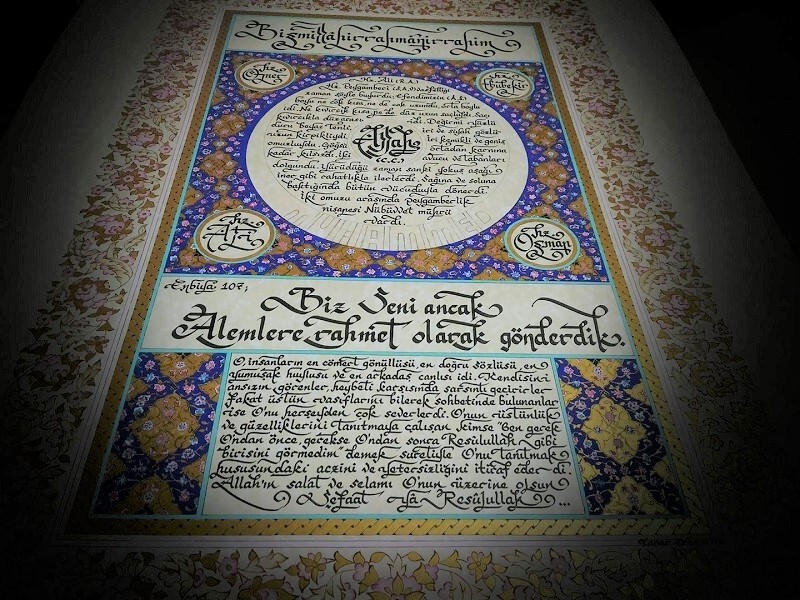 Bizmillâhirrahmânirrahim
Hz. Ömer
Hz. Ebûbekir
Hz. Ali (R.A.)
Hz. Peygamberi (S.A.V)
zaman şöyle buyurdu: Efendimizin
boyu ne çok kısa, ne de çok uzundu, orta boylu
idi. Ne kıvırcık kısa, ne de düz uzun saçlıydı. Saçı
kıvırcıkla düz arası idi. Değirmi yüzlü
duru beyaz tenli, iri ve siyah gözlü
uzun kirpikliydi. İri kemikli ve geniş
omuzluydu. Göğsü ortadan karnına
kadar kılsızdı. İki avucu ve tabanları
dolgundu. Yürüdüğü zaman sanki yokuş aşağı
iner gibi rahatlıkla ilerlerdi. Sağına ve soluna
baktığında bütün vücuduyla dönerdi.
İki omuzu arasında peygamberlik
nişanesi Nübüvvet mührü
vardı.
Allah
(c.c.)
Hz. Ali
Hz. Osman
Enbiya 107;
Biz Seni ancak
Âlemlere rahmet olarak gönderdik.
O, insanların en cömert gönüllüsü, en doğru sözlüsü, en
yumuşak huylusu ve en arkadaş canlısı idi. Kendisini
ansızın görenler, heybeti karşısında sarsıntı geçirirler
fakat üstün vasıflarını bilerek sohbetinde bulunanlar
ise O'nu herşeyden çok severlerdi. O'nun üstünlük
ve güzelliklerini tanıtmaya çalışan kimse "ben gerek
O'ndan önce, gerekse O'ndan sonra Resûlullah gibi
birisini görmedim" demek suretiyle O'nu tanıtmak
hususundaki aczini ve yetersizliğini itiraf ederdi.
Allah'ın salat ve selamı O'nun üzerine olsun
Şefaat Ya Resûlullah ...